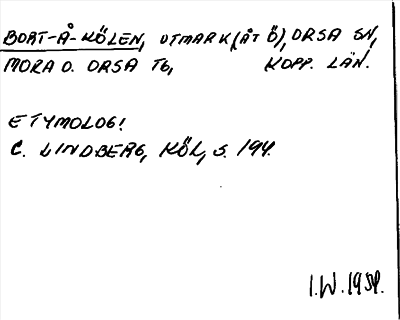 BORT-Å-KÖLEN, UTMARK (ÅT Ö), ORSA SN,
MORA O. ORSA TG, KOPP. LÄN.
ETYMOLOG!
C. LINDBERG, KÖL, S. 194.
I.W. 1954.